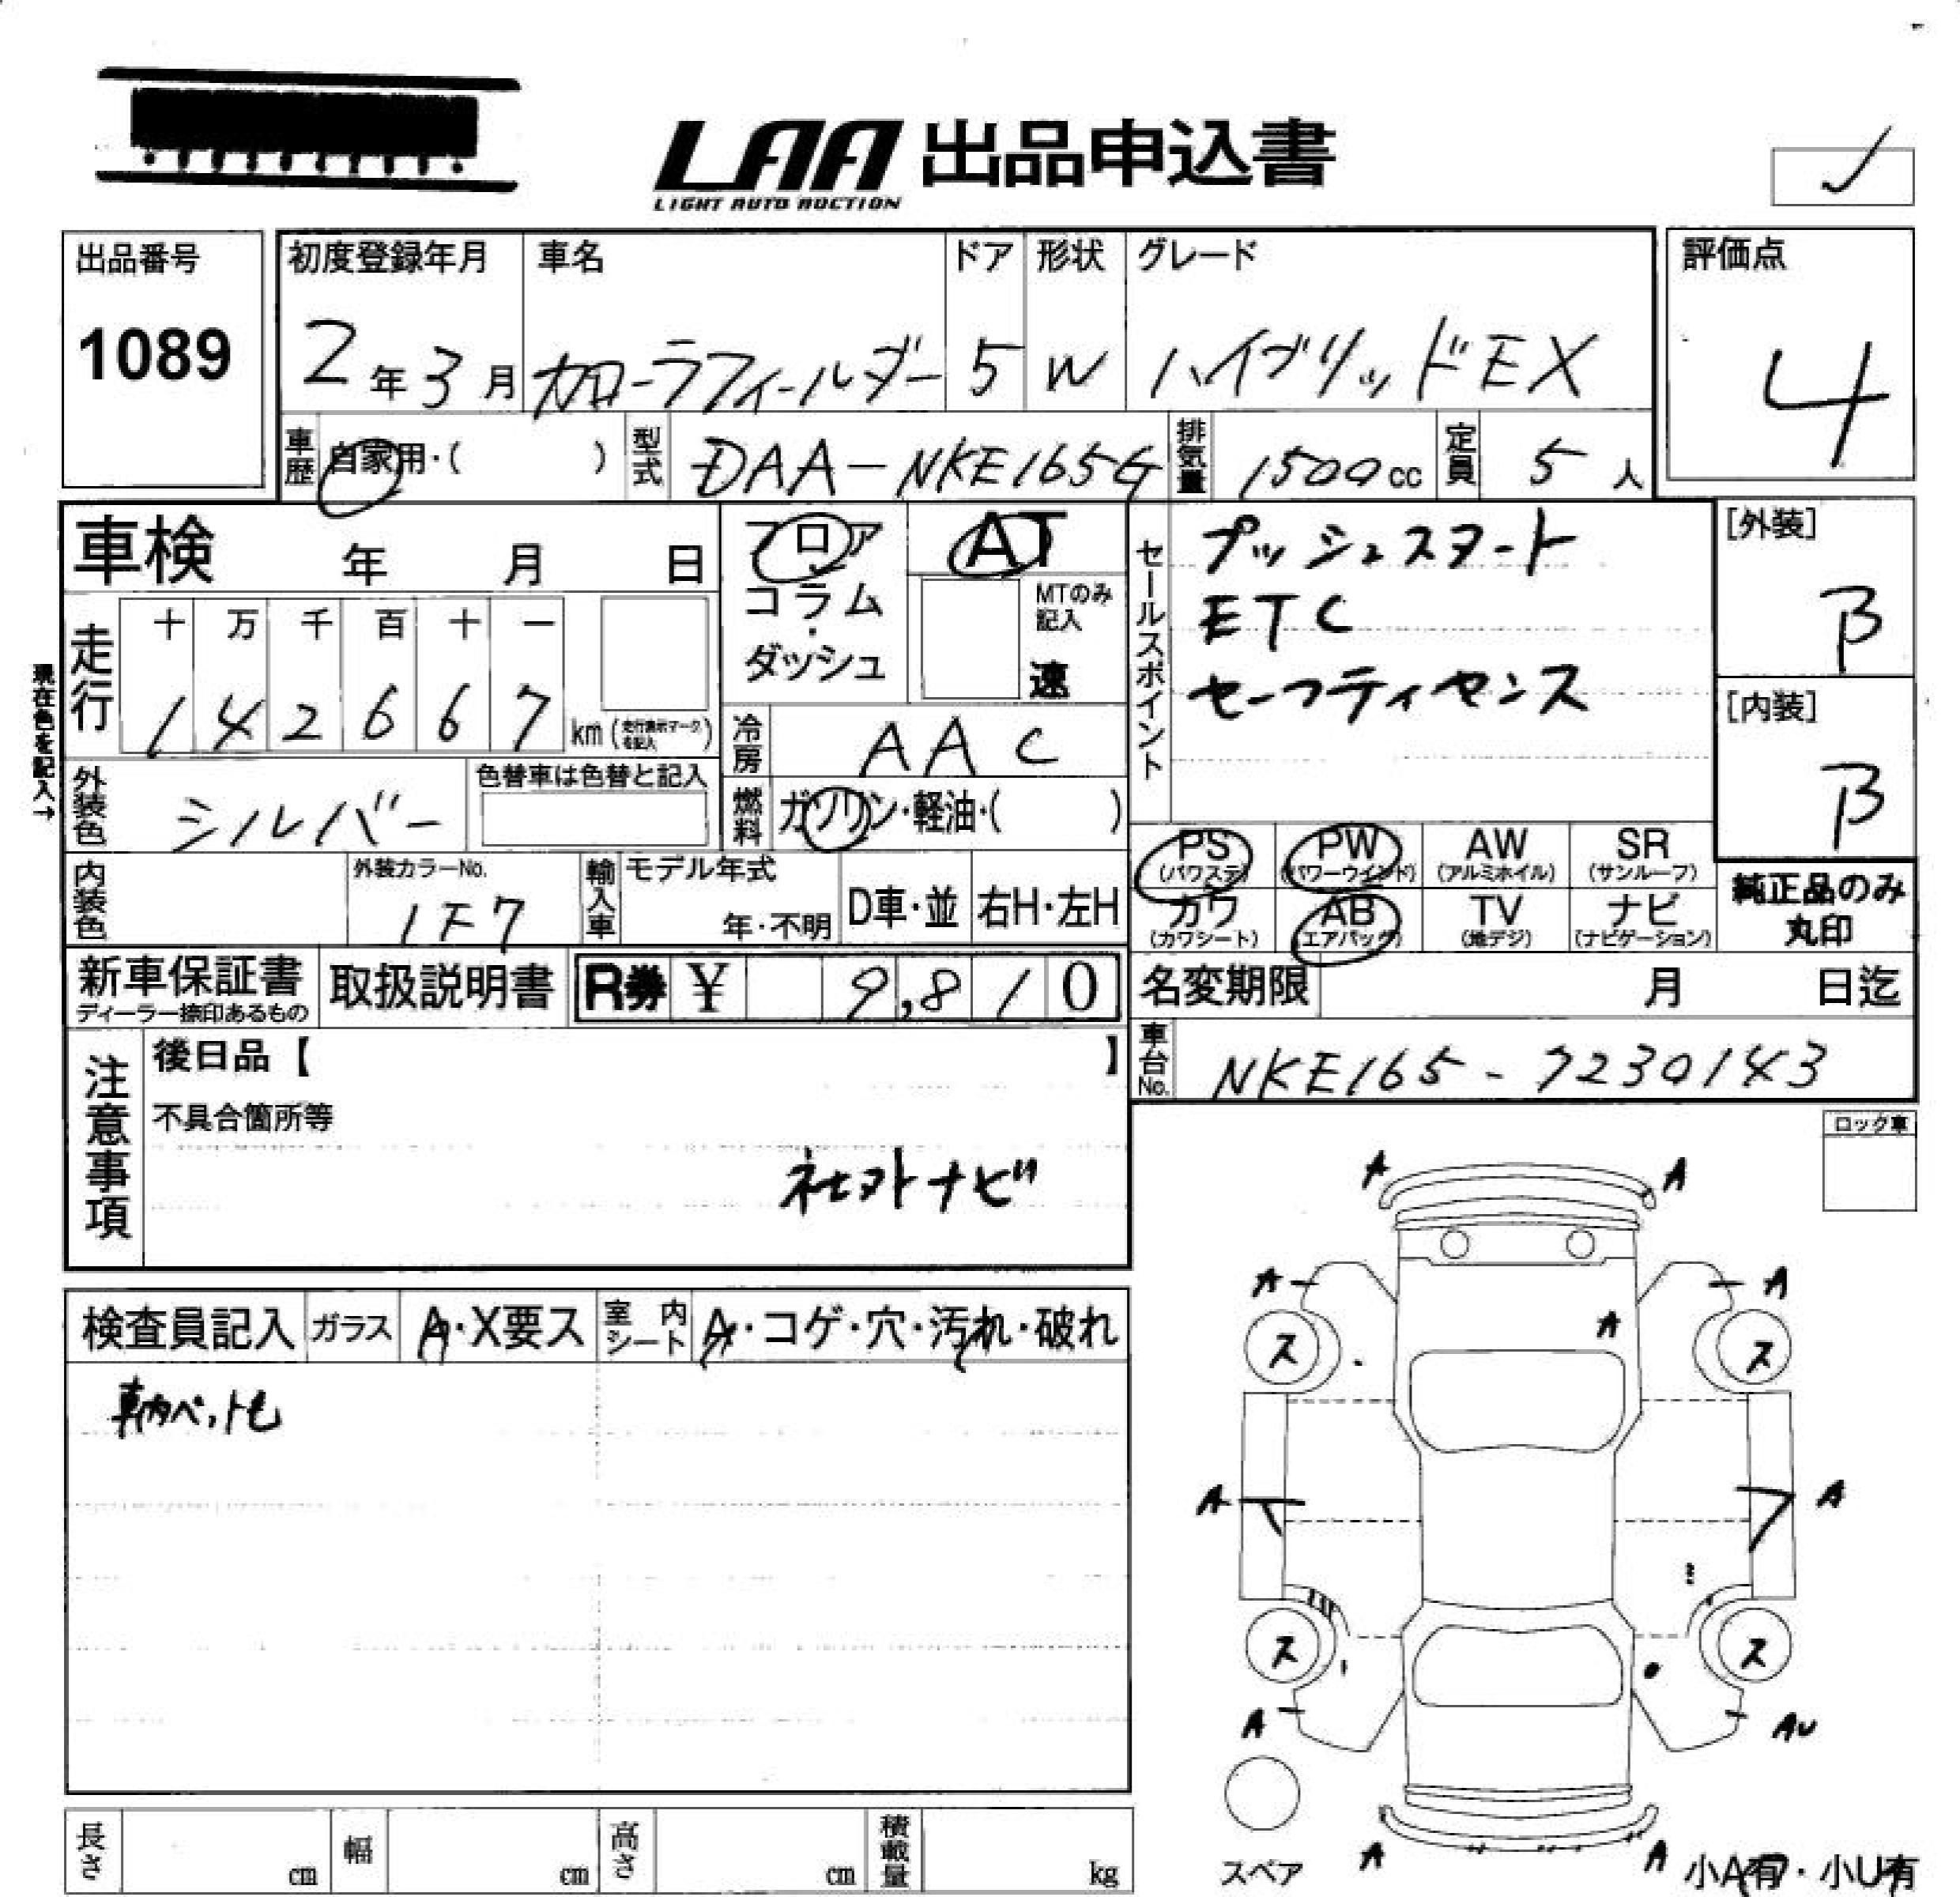 LAA 出品申込書
LIGHT AUTO AUCTION
出品番号
1089
初度登録年月 車名 ドア 形状 グレード
2年3月 カローラフィールダー 5 W ハイブリッドEX
評価点
4
車歴 自家用・( ) 型式 DAA-NKE165G 排気量 1500cc 定員 5人
車検 年 月 日
フロア
コラム
・
ダッシュ
AT
MTのみ記入
速
セールスポイント
プッシュスタート
ETC
セーフティセンス
[外装]
B
[内装]
B
走行
十 万 千 百 十 一
1 4 2 6 6 7 km (走行表示マークを記入)
現在色を記入→
冷房 AAC
外装色 シルバー
色替車は色替と記入
燃料 ガソリン・軽油・( )
内装色
外装カラーNo.
1F7
輸入車 モデル年式
年・不明 D車・並 右H・左H
PS (パワステ) PW (パワーウインド) AW (アルミホイル) SR (サンルーフ)
カワ (カワシート) AB (エアバッグ) TV (地デジ) ナビ (ナビゲーション)
純正品のみ
丸印
新車保証書
ディーラー捺印あるもの
取扱説明書
R券 ¥ 9,810
名変期限 月 日迄
車台No. NKE165-7230143
注意事項
後日品【 】
不具合箇所等
社外ナビ
ロック車
検査員記入 ガラス A・X要ス 室内シート A・コゲ・穴・汚れ・破れ
車内ペット毛
A A
A A
A
ス ス
A A
ス ス
A AU
A A
スペア
小A有・小U有
長さ cm 幅 cm 高さ cm 積載量 kg